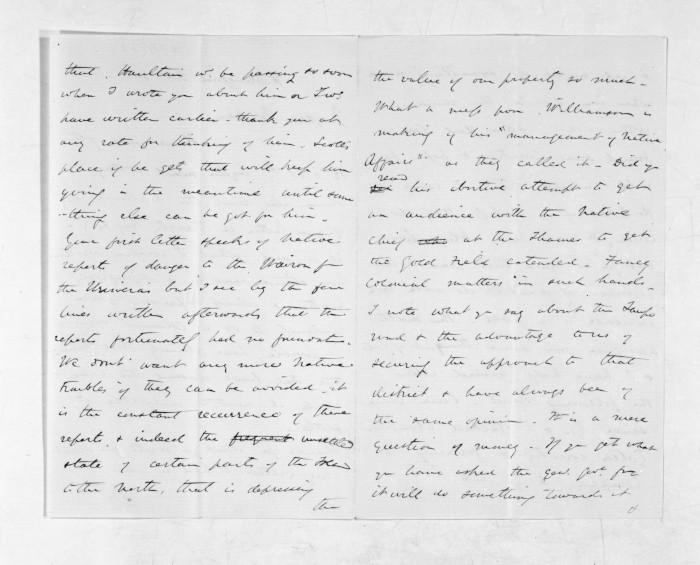 that. Haultain wd. be passing so soon
when I wrote you about him or I wd.
have written earlier - thank you at
any rate for thinking of him. Scotts
place if he gets that will keep him
going in the meantime until some
-thing else can be got for him -
Your first letter speaks of Native
reports of danger to the Wairoa fm
the Urewera's but I see by the few
lines written afterwards that the
reports fortunately had no foundatn.
We don't want any more Native
troubles if they can be avoided. it
is the constant recurrence of these
reports, & indeed the frequent unsettled
state of certain parts of the
to the North, that is depressing
the
the value of our property so much -
What a mess poor Williamson is
making of his "management of Native
Affairs" as they called it - Did you
read his abortive attempt to get
an audience with the Native
chief at the Thames to get
the Gold Field extended - Fancy
Colonial matters in such hands -
I note what you say about the Taupo
road & the advantage to us of
securing the approach to that
district & have always been of
the same opinion. It is a mere
question of money - If you get what
you have asked the govt. for
it will do something towards it